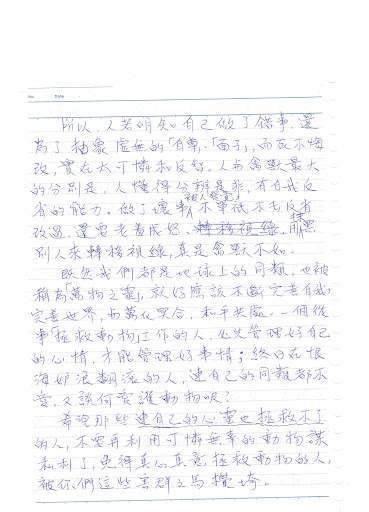 No. Date
所以，人若明知自己做了錯事，還
為了抽象虛無的「自尊」「面子」，而死不悔
改，實在太可憐和反智。人与禽獸最大
的分別是，人懂得分辨是非，有自我反
省的能力。做了壞事被人發覺，不單祇不去反省
改過，還要老羞成怒，轉移視線，用抹黑
別人來轉移視線，真是禽獸不如。
既然我們都是地球上的同類，也被
稱為「萬物之靈」，就好應該不斷完善自我，
完善世界，与萬化冥合，和平共處。一個從
事「拯救動物」工作的人，必先管理好自己
的心情，才能管理好事情；終日在恨
海妒浪翻滾的人，連自己的同類都不
愛，又談何愛護動物呢？
希望那些連自己的心靈也拯救不了
的人，不要再利用可憐無辜的動物謀
私利了，免得真心真意拯救動物的人，
被你們這些害群之馬攪垮。